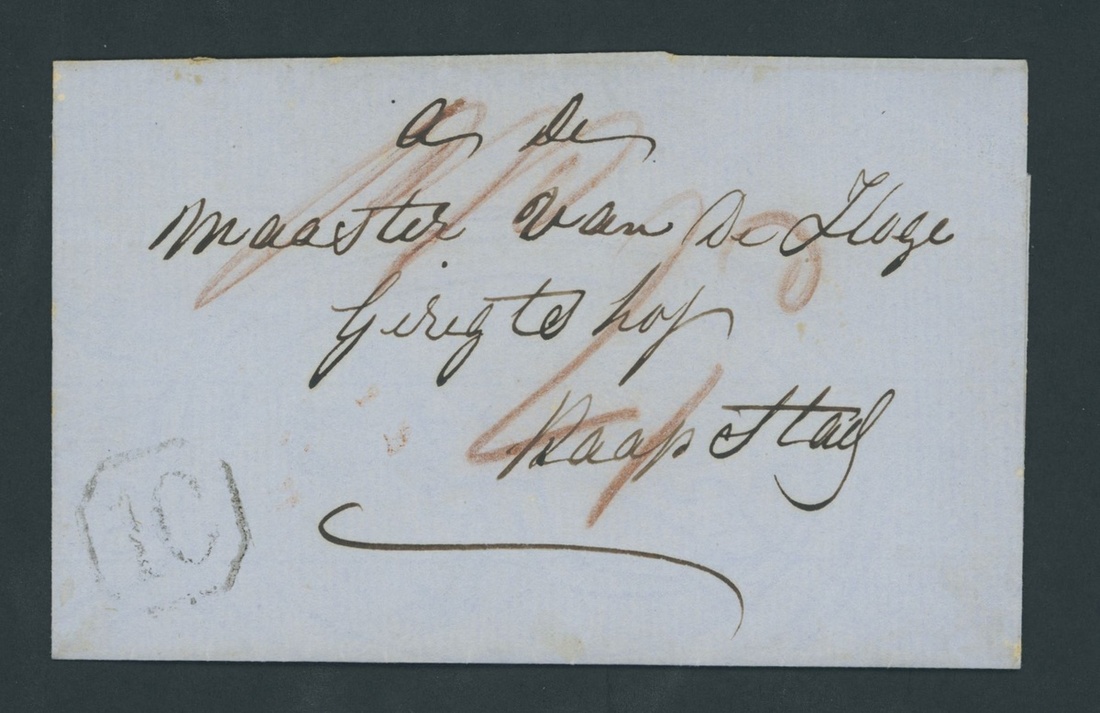 a de
Maaster van De Hoge
Geregtshof
Kaap Stad
1C